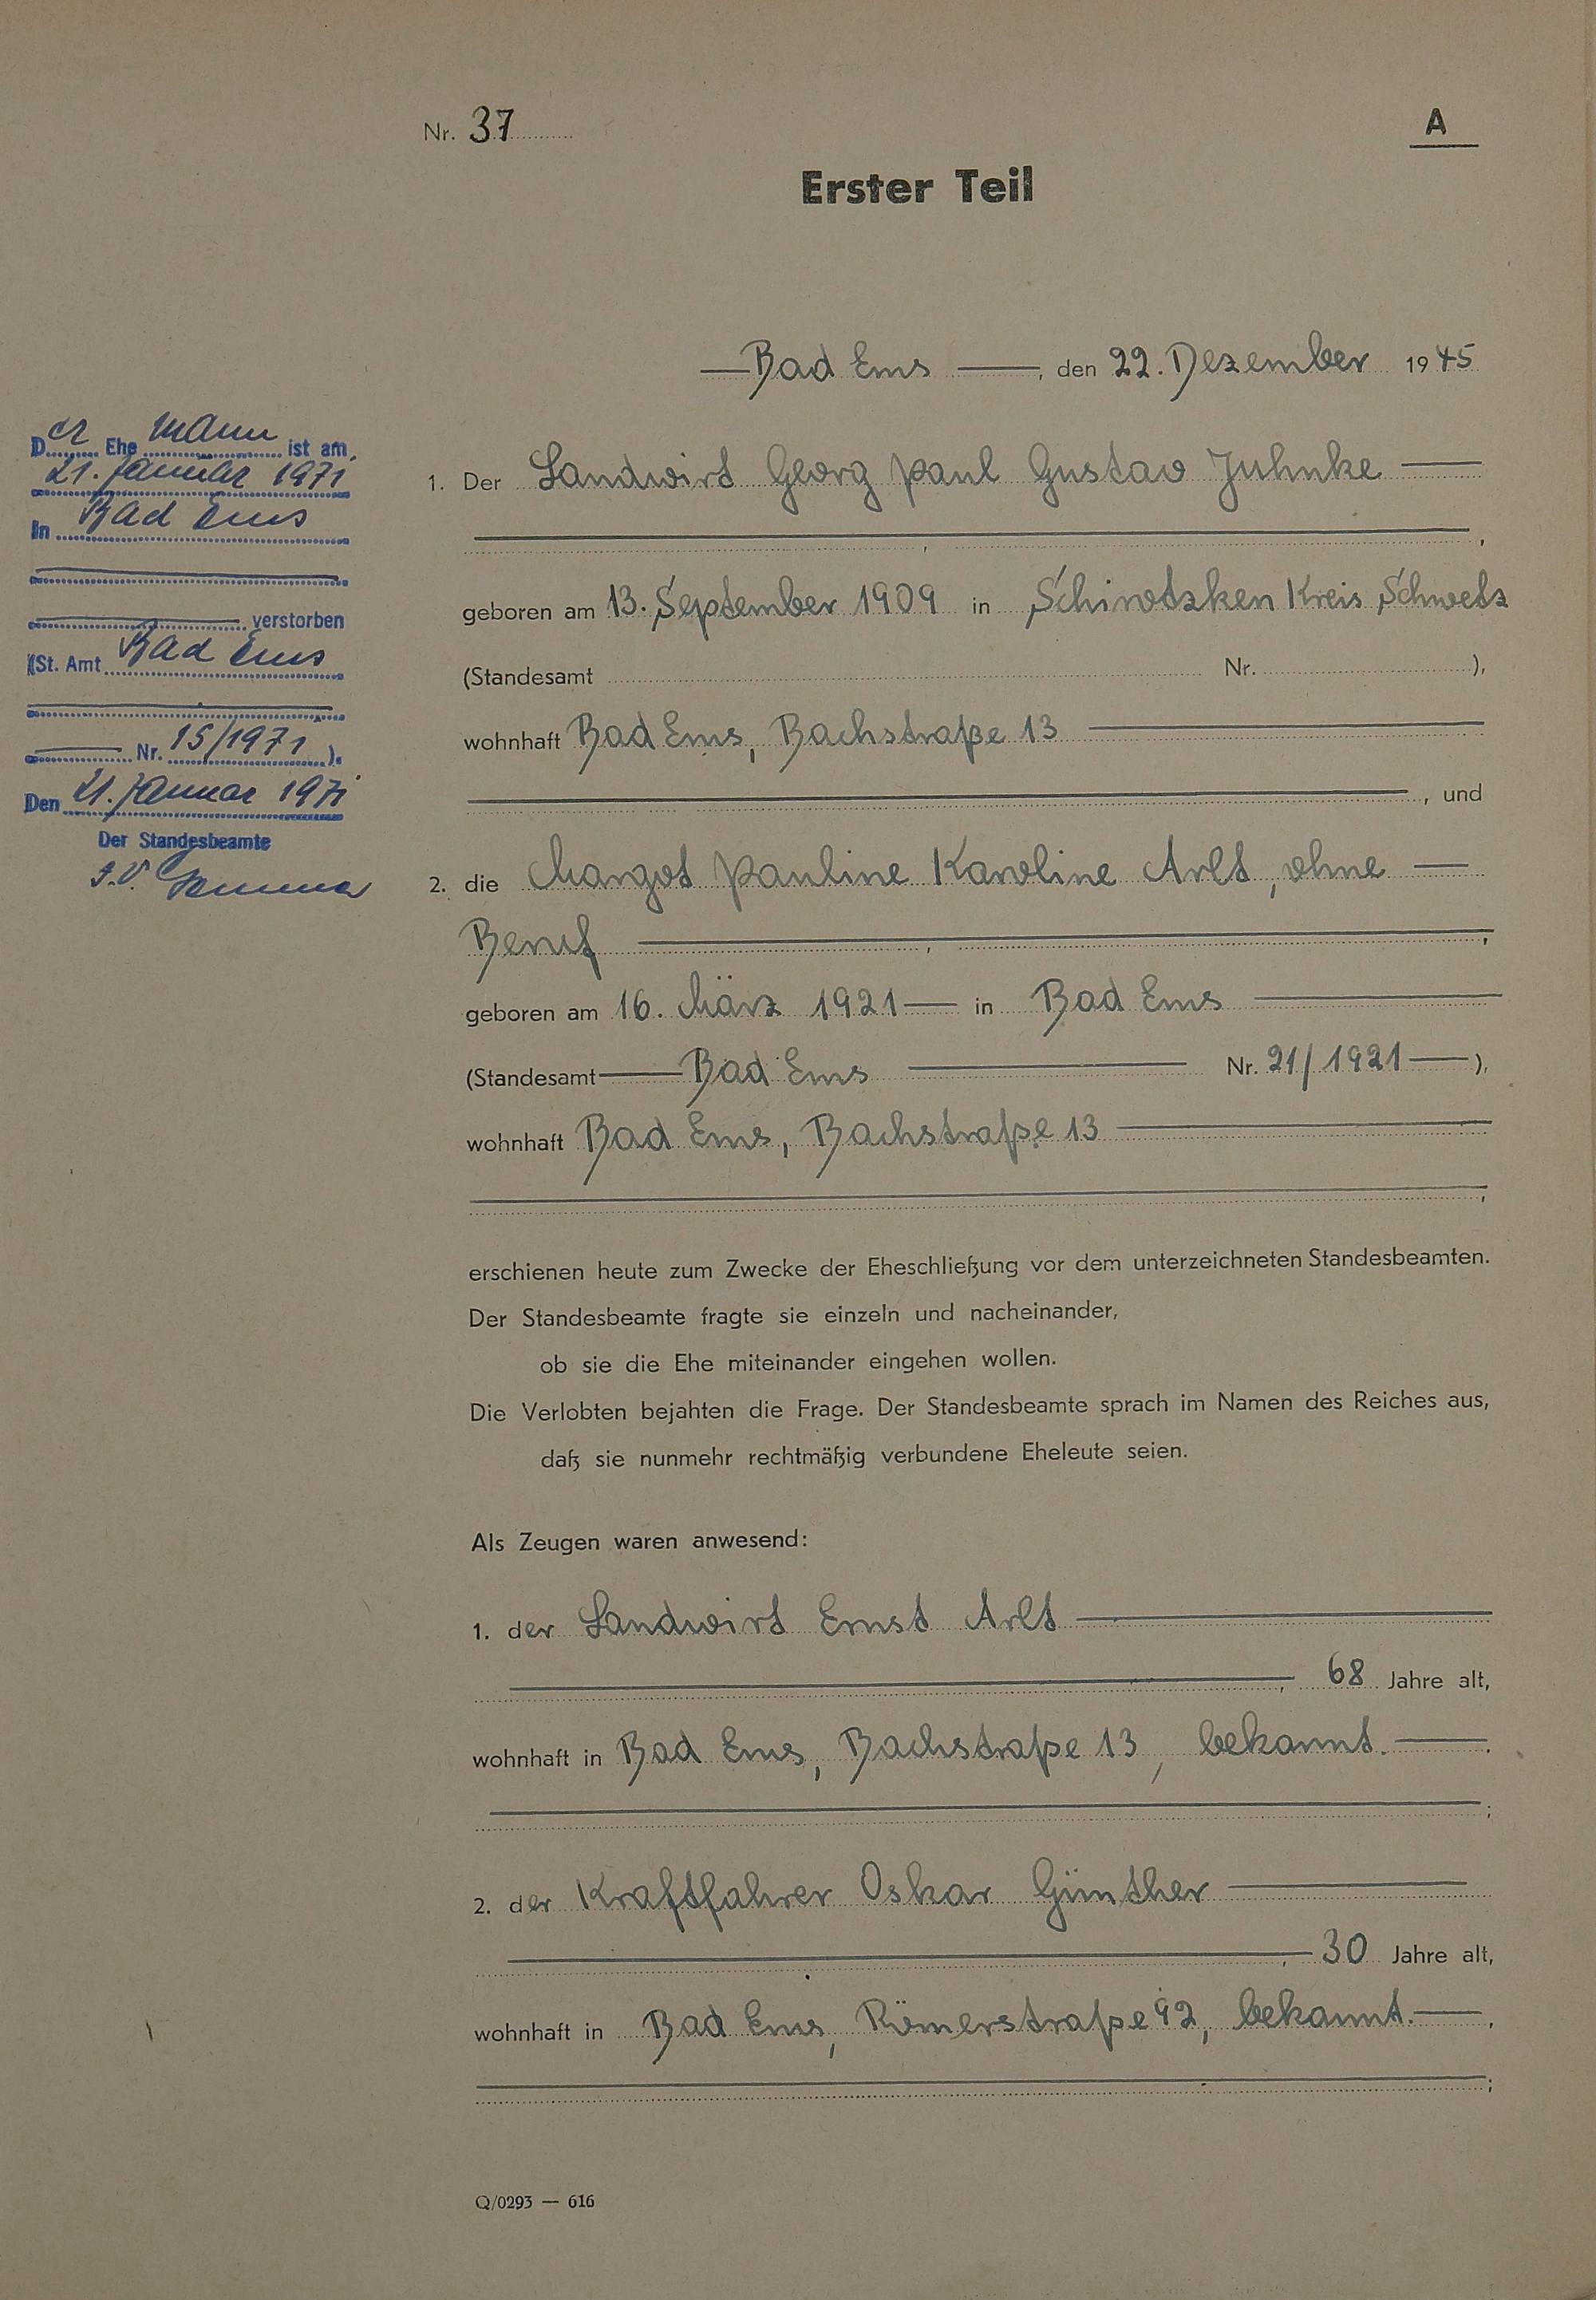 Nr. 37
A
Erster Teil
Bad Ems, den 22. Dezember 1945
Der Ehemann ist am
21. Januar 1971
in Bad Ems
verstorben
(St. Amt Bad Ems
Nr. 15/1971).
Den 21. Januar 1971
Der Standesbeamte
I.V.
1. Der Landwirt Georg Paul Gustav Juhnke
,
geboren am 13. September 1909 in Schirotzken Kreis Schwetz
(Standesamt Nr. ),
wohnhaft Bad Ems, Bachstraße 13
, und
2. die Margot Pauline Karoline Arlt, ohne
Beruf ,
geboren am 16. März 1921 in Bad Ems
(Standesamt Bad Ems Nr. 21/1921),
wohnhaft Bad Ems, Bachstraße 13
,
erschienen heute zum Zwecke der Eheschließung vor dem unterzeichneten Standesbeamten.
Der Standesbeamte fragte sie einzeln und nacheinander,
ob sie die Ehe miteinander eingehen wollen.
Die Verlobten bejahten die Frage. Der Standesbeamte sprach im Namen des Reiches aus,
daß sie nunmehr rechtmäßig verbundene Eheleute seien.
Als Zeugen waren anwesend:
1. der Landwirt Ernst Arlt
, 68 Jahre alt,
wohnhaft in Bad Ems, Bachstraße 13, bekannt.
;
2. der Kraftfahrer Oskar Günther
, 30 Jahre alt,
wohnhaft in Bad Ems, Römerstraße 92, bekannt.
;
Q/0293 — 616